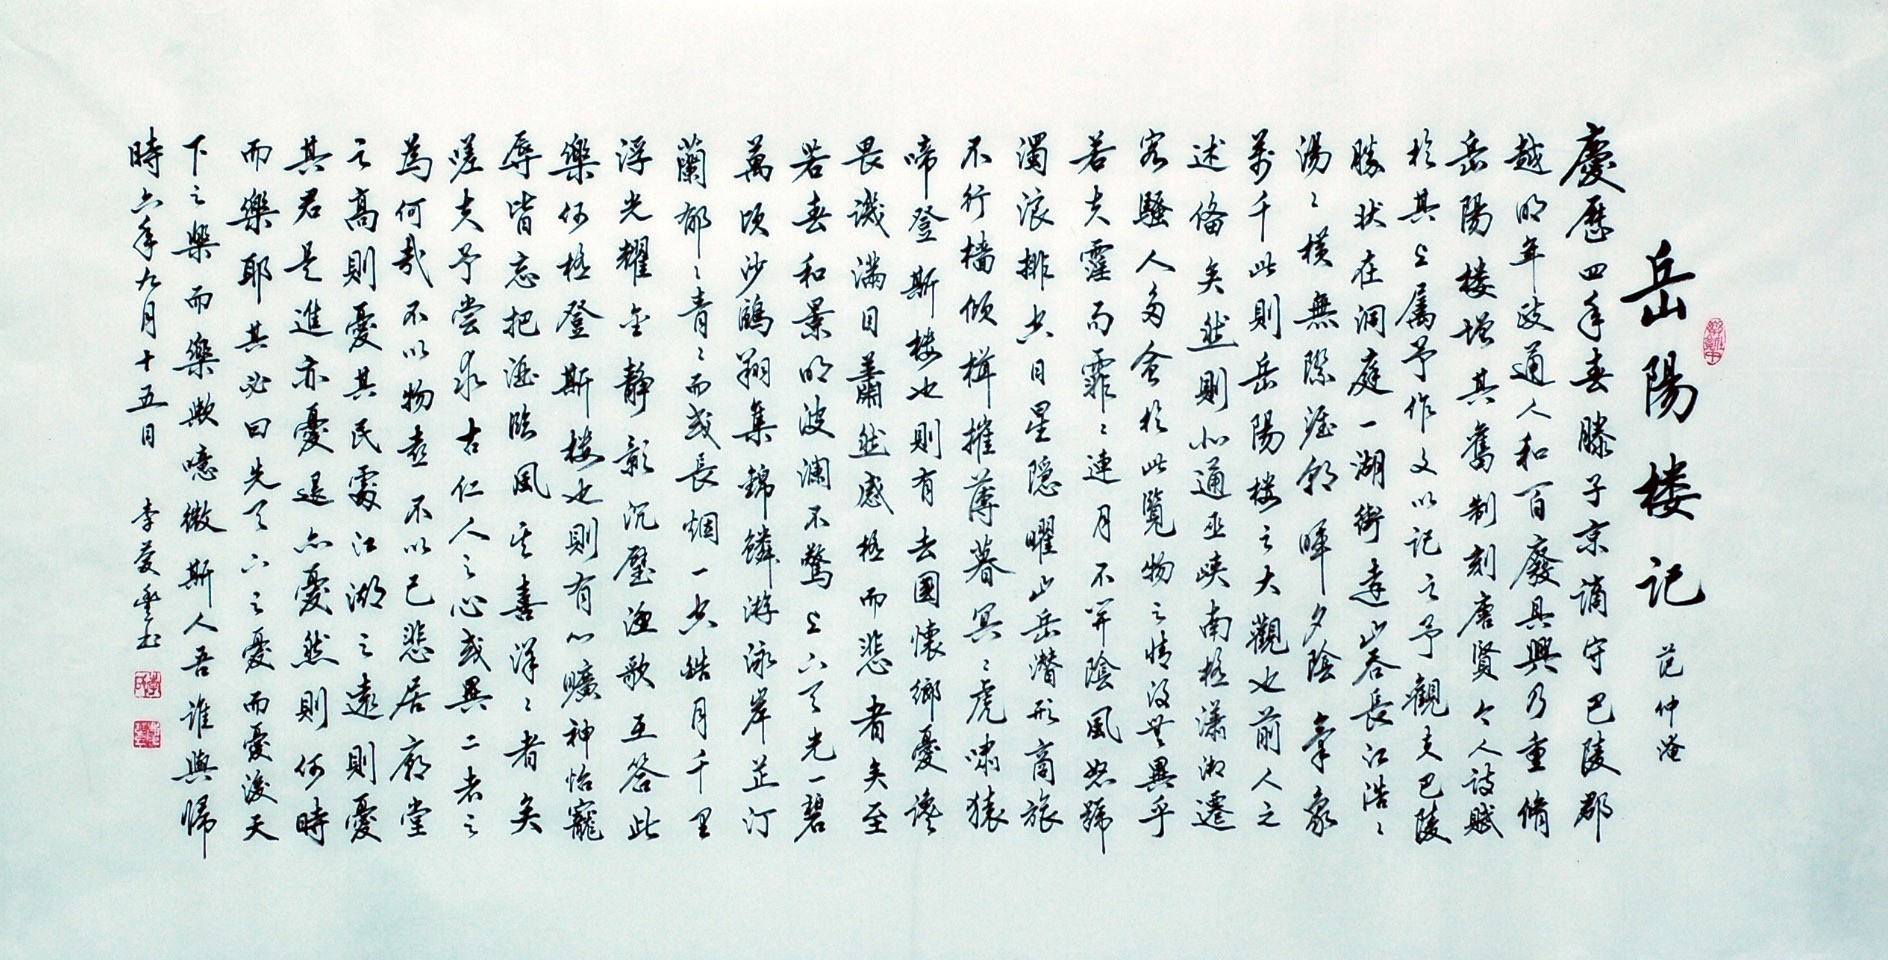 岳陽楼记 范仲淹
慶歷四年春滕子京谪守巴陵郡
越明年政通人和百廢具興乃重脩
岳陽楼增其舊制刻唐賢今人詩賦
於其上属予作文以记之予觀夫巴陵
勝状在洞庭一湖銜遠山吞長江浩〻
湯〻横無際涯朝暉夕陰氣象
萬千此則岳陽楼之大觀也前人之
述備矣然則北通巫峡南極潇湘遷
客騷人多會於此覽物之情得無異乎
若夫霪雨霏〻連月不開陰風怒號
濁浪排空日星隱曜山岳潜形商旅
不行檣傾楫摧薄暮冥〻虎啸猿
啼登斯楼也則有去國懷鄉憂讒
畏譏滿目蕭然感極而悲者矣至
若春和景明波澜不驚上下天光一碧
萬顷沙鷗翔集錦鱗游泳岸芷汀
蘭郁〻青〻而或長烟一空皓月千里
浮光耀金静影沉璧漁歌互答此
樂何極登斯楼也則有心曠神怡寵
辱皆忘把酒臨風其喜洋〻者矣
嗟夫予嘗求古仁人之心或異二者之
為何哉不以物喜不以己悲居廟堂
之高則憂其民處江湖之遠則憂
其君是進亦憂退亦憂然則何時
而樂耶其必曰先天下之憂而憂後天
下之樂而樂欤噫微斯人吾谁與歸
時六年九月十五日 李